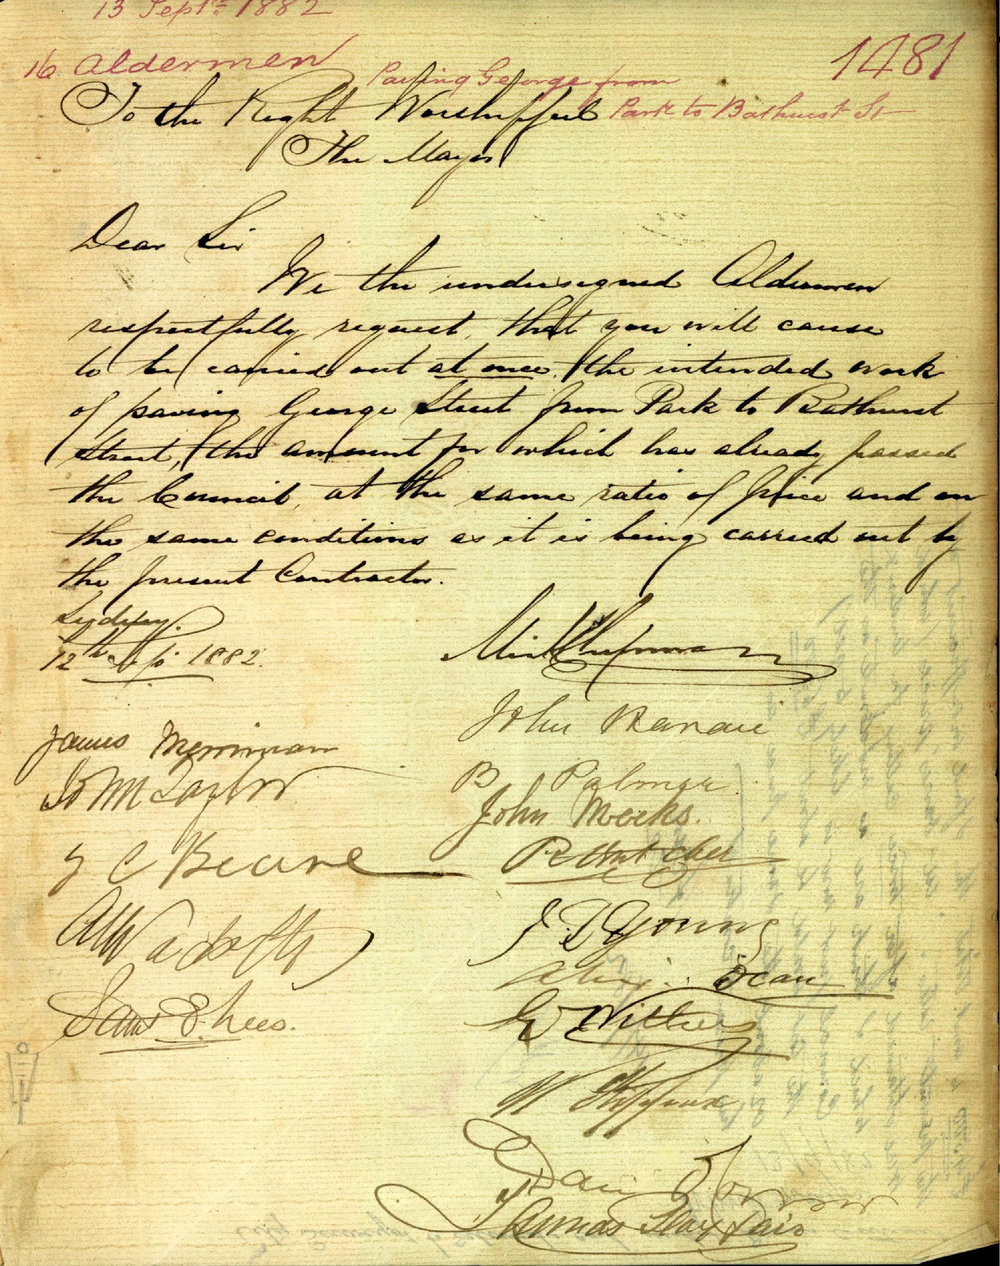 13 Sept 1882
16 Aldermen
1481
Paving George from
Park to Bathurst St
To the Right Worshipful
The Mayor
Dear Sir
We the undersigned Aldermen
respectfully request, that you will cause
to be carried out at once, the intended work
of paving George Street from Park to Bathurst
Street, the amount for which has already passed
the Council, at the same ratio of price and on
the same conditions as it is being carried out by
the present Contractor.
Sydney.
12th Sep. 1882.
Mich Chapman
John
James Merriman
B Palmer.
Jo M Taylor
John Meeks.
J C Beare
R Butcher
J. D Young
Dean
Sam E. Lees.
Withers
W
Dan
Thomas Playfair